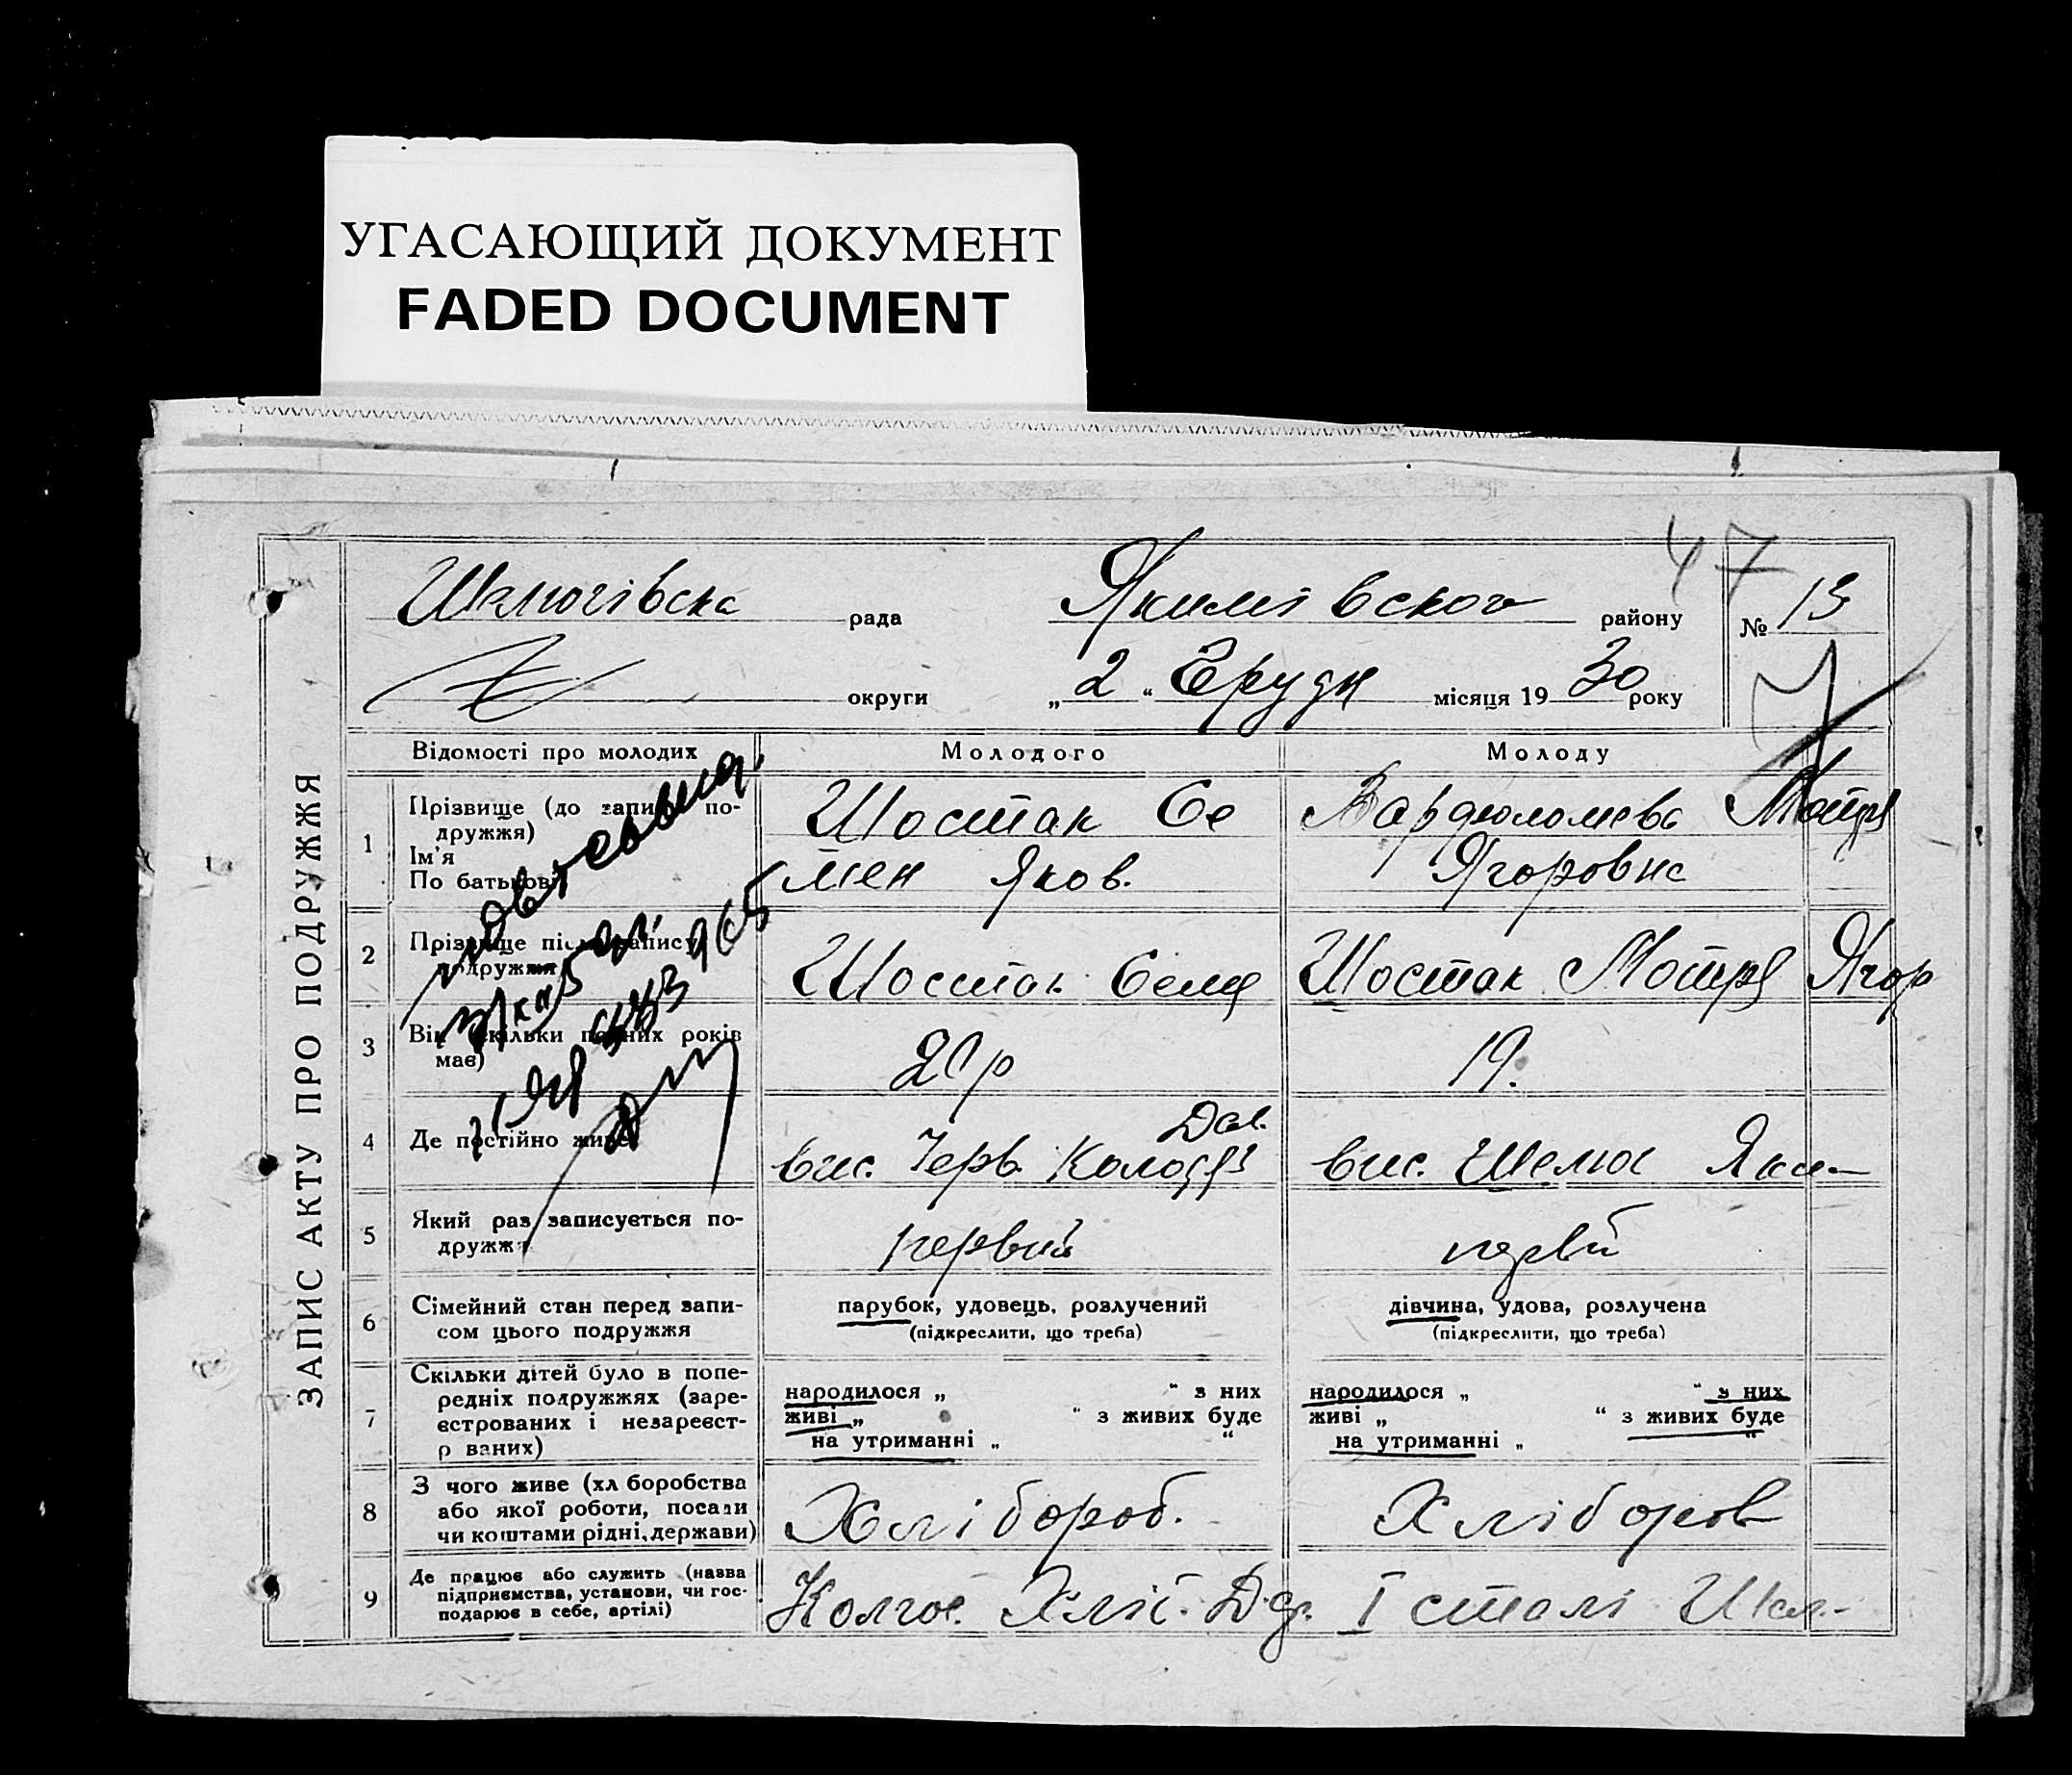 УГАСАЮЩИЙ ДОКУМЕНТ
FADED DOCUMENT
47
рада Якимівского району № 13
округи „2“ Грудн місяця 1930 року
ЗАПИС АКТУ ПРО ПОДРУЖЖЯ
Відомості про молодих Молодого Молоду
1 Прізвище (до запису подружжя)
Ім'я
По батькові
Шостак Се
мен Яков.
Вардюломева Мотря
Ягоровна
2 Прізвище після запису
подружжя
Шостак Семе Шостак Мотря Ягор
3 Вік (скільки повних років
має)
20р 19.
4 Де постійно живе
вис. Черв. Колодязь вис. Яки-
5 Який раз записується по-
дружжя
первий
6 Сімейний стан перед запи-
сом цього подружжя
парубок, удовець, розлучений
(підкреслити, що треба)
дівчина, удова, розлучена
(підкреслити, що треба)
7 Скільки дітей було в попе-
редніх подружжях (заре-
єстрованих і незареєст-
р ваних)
народилося „ “ з них
живі „ “ з живих буде
на утриманні „ “
народилося „ “ з них
живі „ “ з живих буде
на утриманні „ “
8 З чого живе (хл боробства
або якої роботи, посади
чи коштами рідні, держави)
Хлібороб. Хлібороб
9 Де працює або служить (назва
підприємства, установи, чи гос-
подарює в себе, артілі)
Колгос.